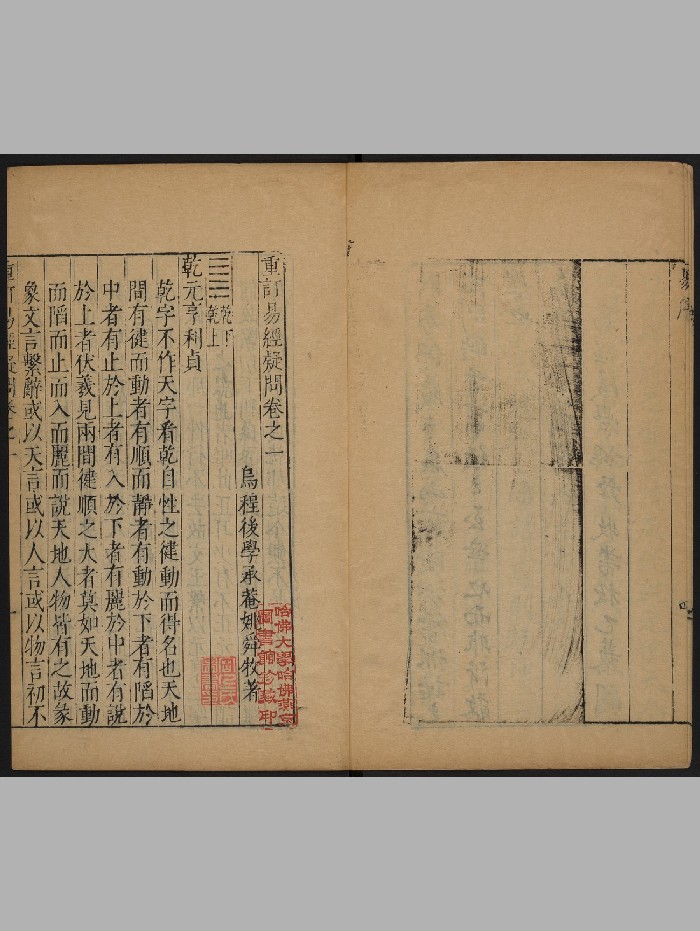 重訂易經疑問卷之一
烏程後學承菴姚舜牧著
乾下
乾上
乾元亨利貞
乾字不作天字看乾自性之健動而得名也天地
間有健而動者有順而靜者有動於下者有陷於
中者有止於上者有入於下者有麗於中者有說
於上者伏羲見兩間健順之大者莫如天地而動
而陷而止而入而麗而說天地人物皆有之故彖
象文言繫辭或以天言或以人言或以物言初不
重訂易經疑問卷之一
一
哈佛大學哈佛燕京
圖書館珍藏印